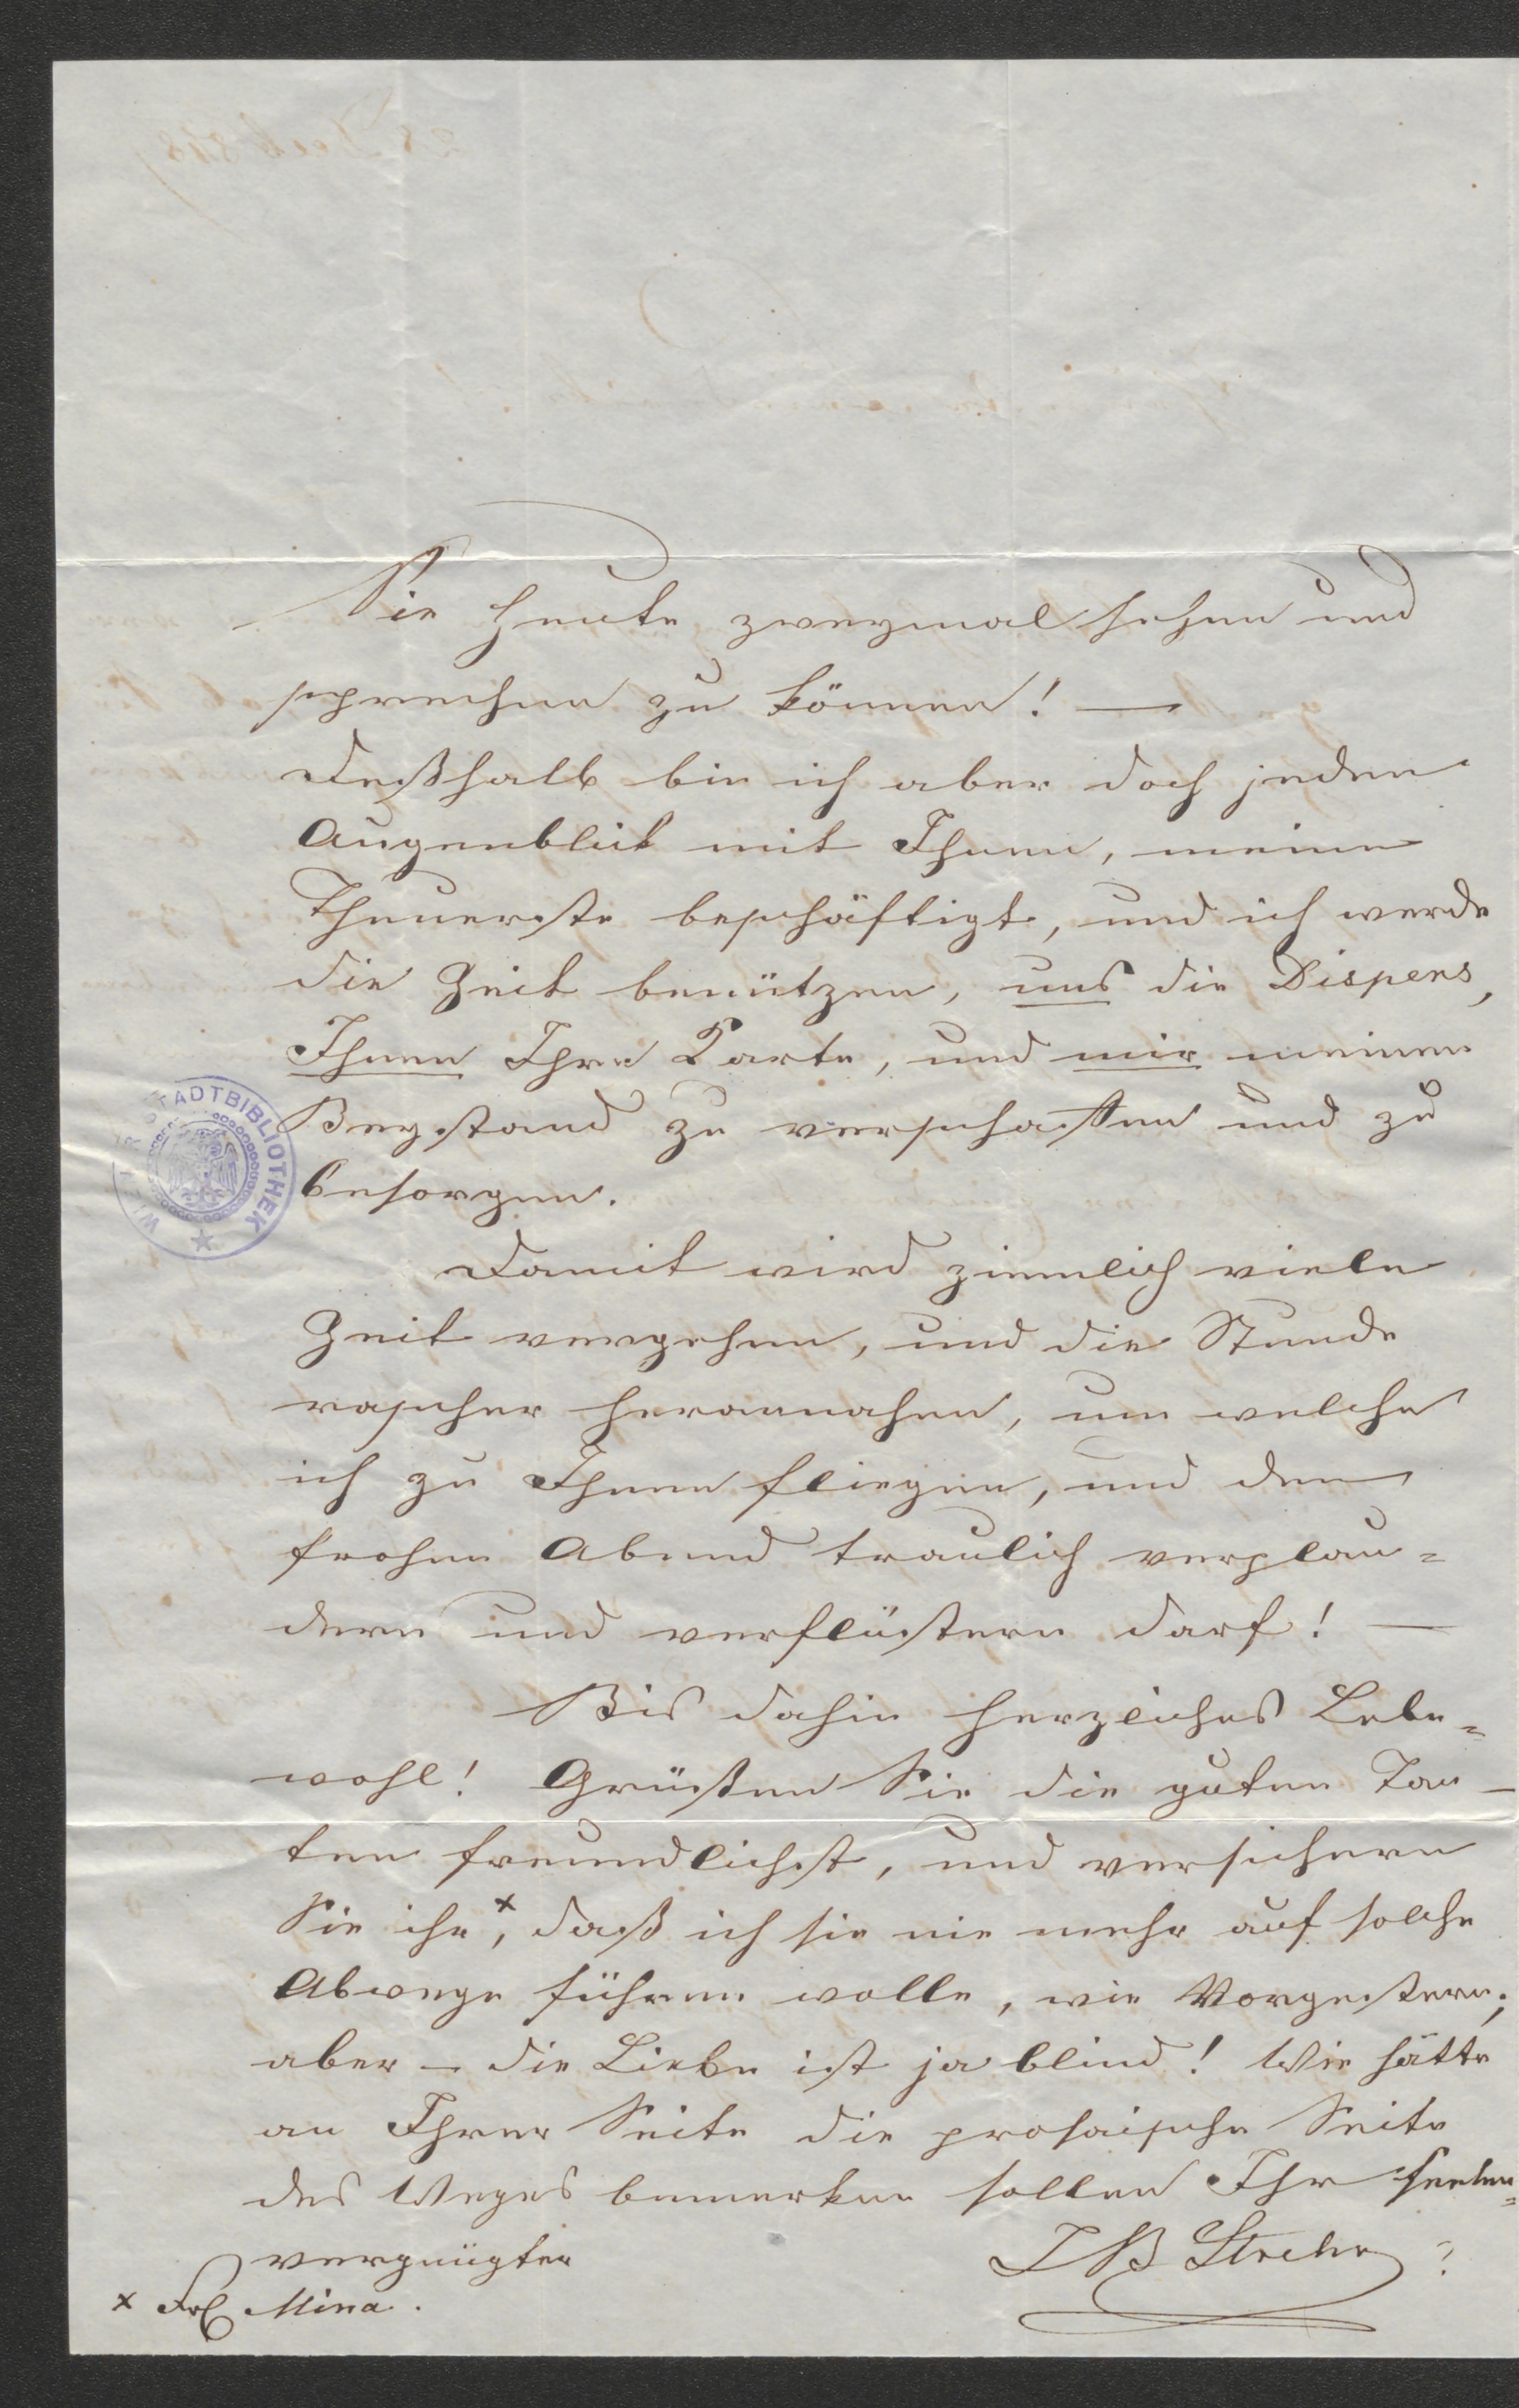 Sie heute zweymal sehen und
sprechen zu können! —
Deßhalb bin ich aber doch jeden
Augenblick mit Ihnen, meine
Theuerste beschäftigt, und ich werde
die Zeit benützen, uns die Dispens,
Ihnen Ihre Karte, und mir meinen
Beystand zu verschaffen und zu
besorgen.
WIENER STADTBIBLIOTHEK
Damit wird ziemlich viele
Zeit vergehen, und die Stunde
rascher herannahen, um welche
ich zu Ihnen fliegen, und den
frohen Abend traulich verplau=
dern und verflüstern darf! —
Bis dahin herzliches Lebe=
wohl! Grüßen Sie die guten Tan-
ten freundlichst, und versichern
Sie ihr x, daß ich sie nie mehr auf solche
Abwege führen wolle, wie Vorgestern;
aber – die Liebe ist ja blind! Wie hätte
an Ihrer Seite die prosaische Seite
des Weges bemerken sollen Ihr seelen=
vergnügter
J B Strehr ?
x Frl Mina.